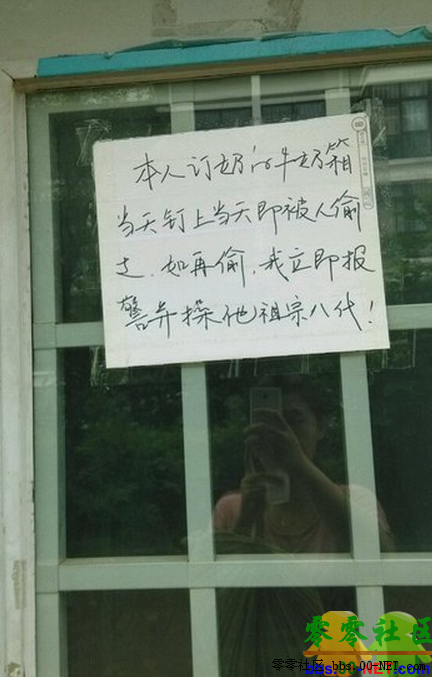 本人订奶的牛奶箱
当天钉上当天即被人偷
走.如再偷,我立即报
警并操他祖宗八代!
零零社区
bbs.00-NET.com
零零社区 bbs.00-NET.com